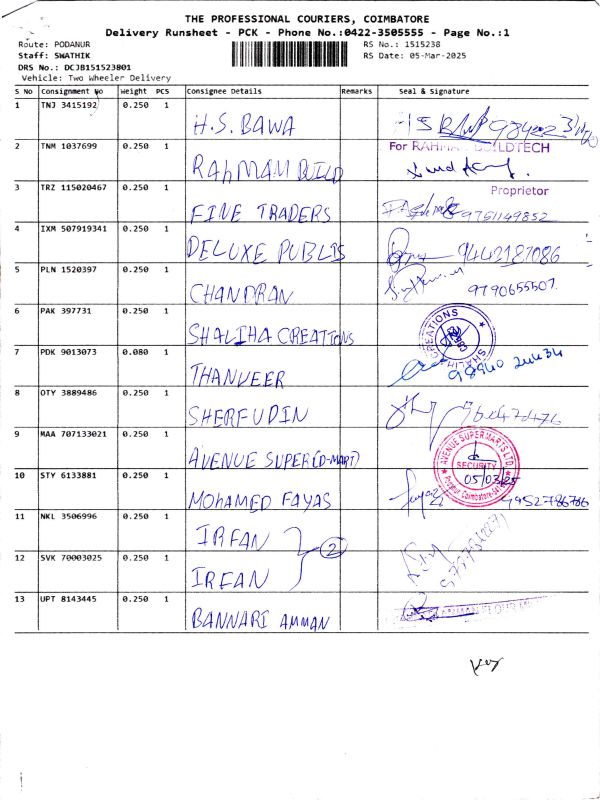 THE PROFESSIONAL COURIERS, COIMBATORE
Delivery Runsheet - PCK - Phone No.:0422-3505555 - Page No.:1
Route: PODANUR
RS No.: 1515238
Staff: SWATHIK
RS Date: 05-Mar-2025
DRS No.: DCJB151523801
Vehicle: Two Wheeler Delivery
S No Consignment No Weight PCS Consignee Details Remarks Seal & Signature
1 TNJ 3415192 0.250 1 H.S. BAWA
2 TNM 1037699 0.250 1 RAhMAM BUILD For RAHMA BUILDTECH
Proprietor
3 TRZ 115020467 0.250 1 FINE TRADERS 9751149852
4 IXM 507919341 0.250 1 DELUXE PUBLIS 9443187086
5 PLN 1520397 0.250 1 CHANDRAN 9790655507.
6 PAK 397731 0.250 1 SHALIHA CREATIONS SHALIHA CREATIONS
7 PDK 9013073 0.080 1 THANVEER
8 OTY 3889486 0.250 1 SHERFUDIN
9 MAA 707133021 0.250 1 AVENUE SUPER (D-MART) AVENUE SUPERMARTS LTD.
SECURITY
05/03/25
10 STY 6133881 0.250 1 MOhAMED FAYAS 9952786786
11 NKL 3506996 0.250 1 IRFAN
2
12 SVK 70003025 0.250 1 IRFAN
13 UPT 8143445 0.250 1 BANNARI AMMAN